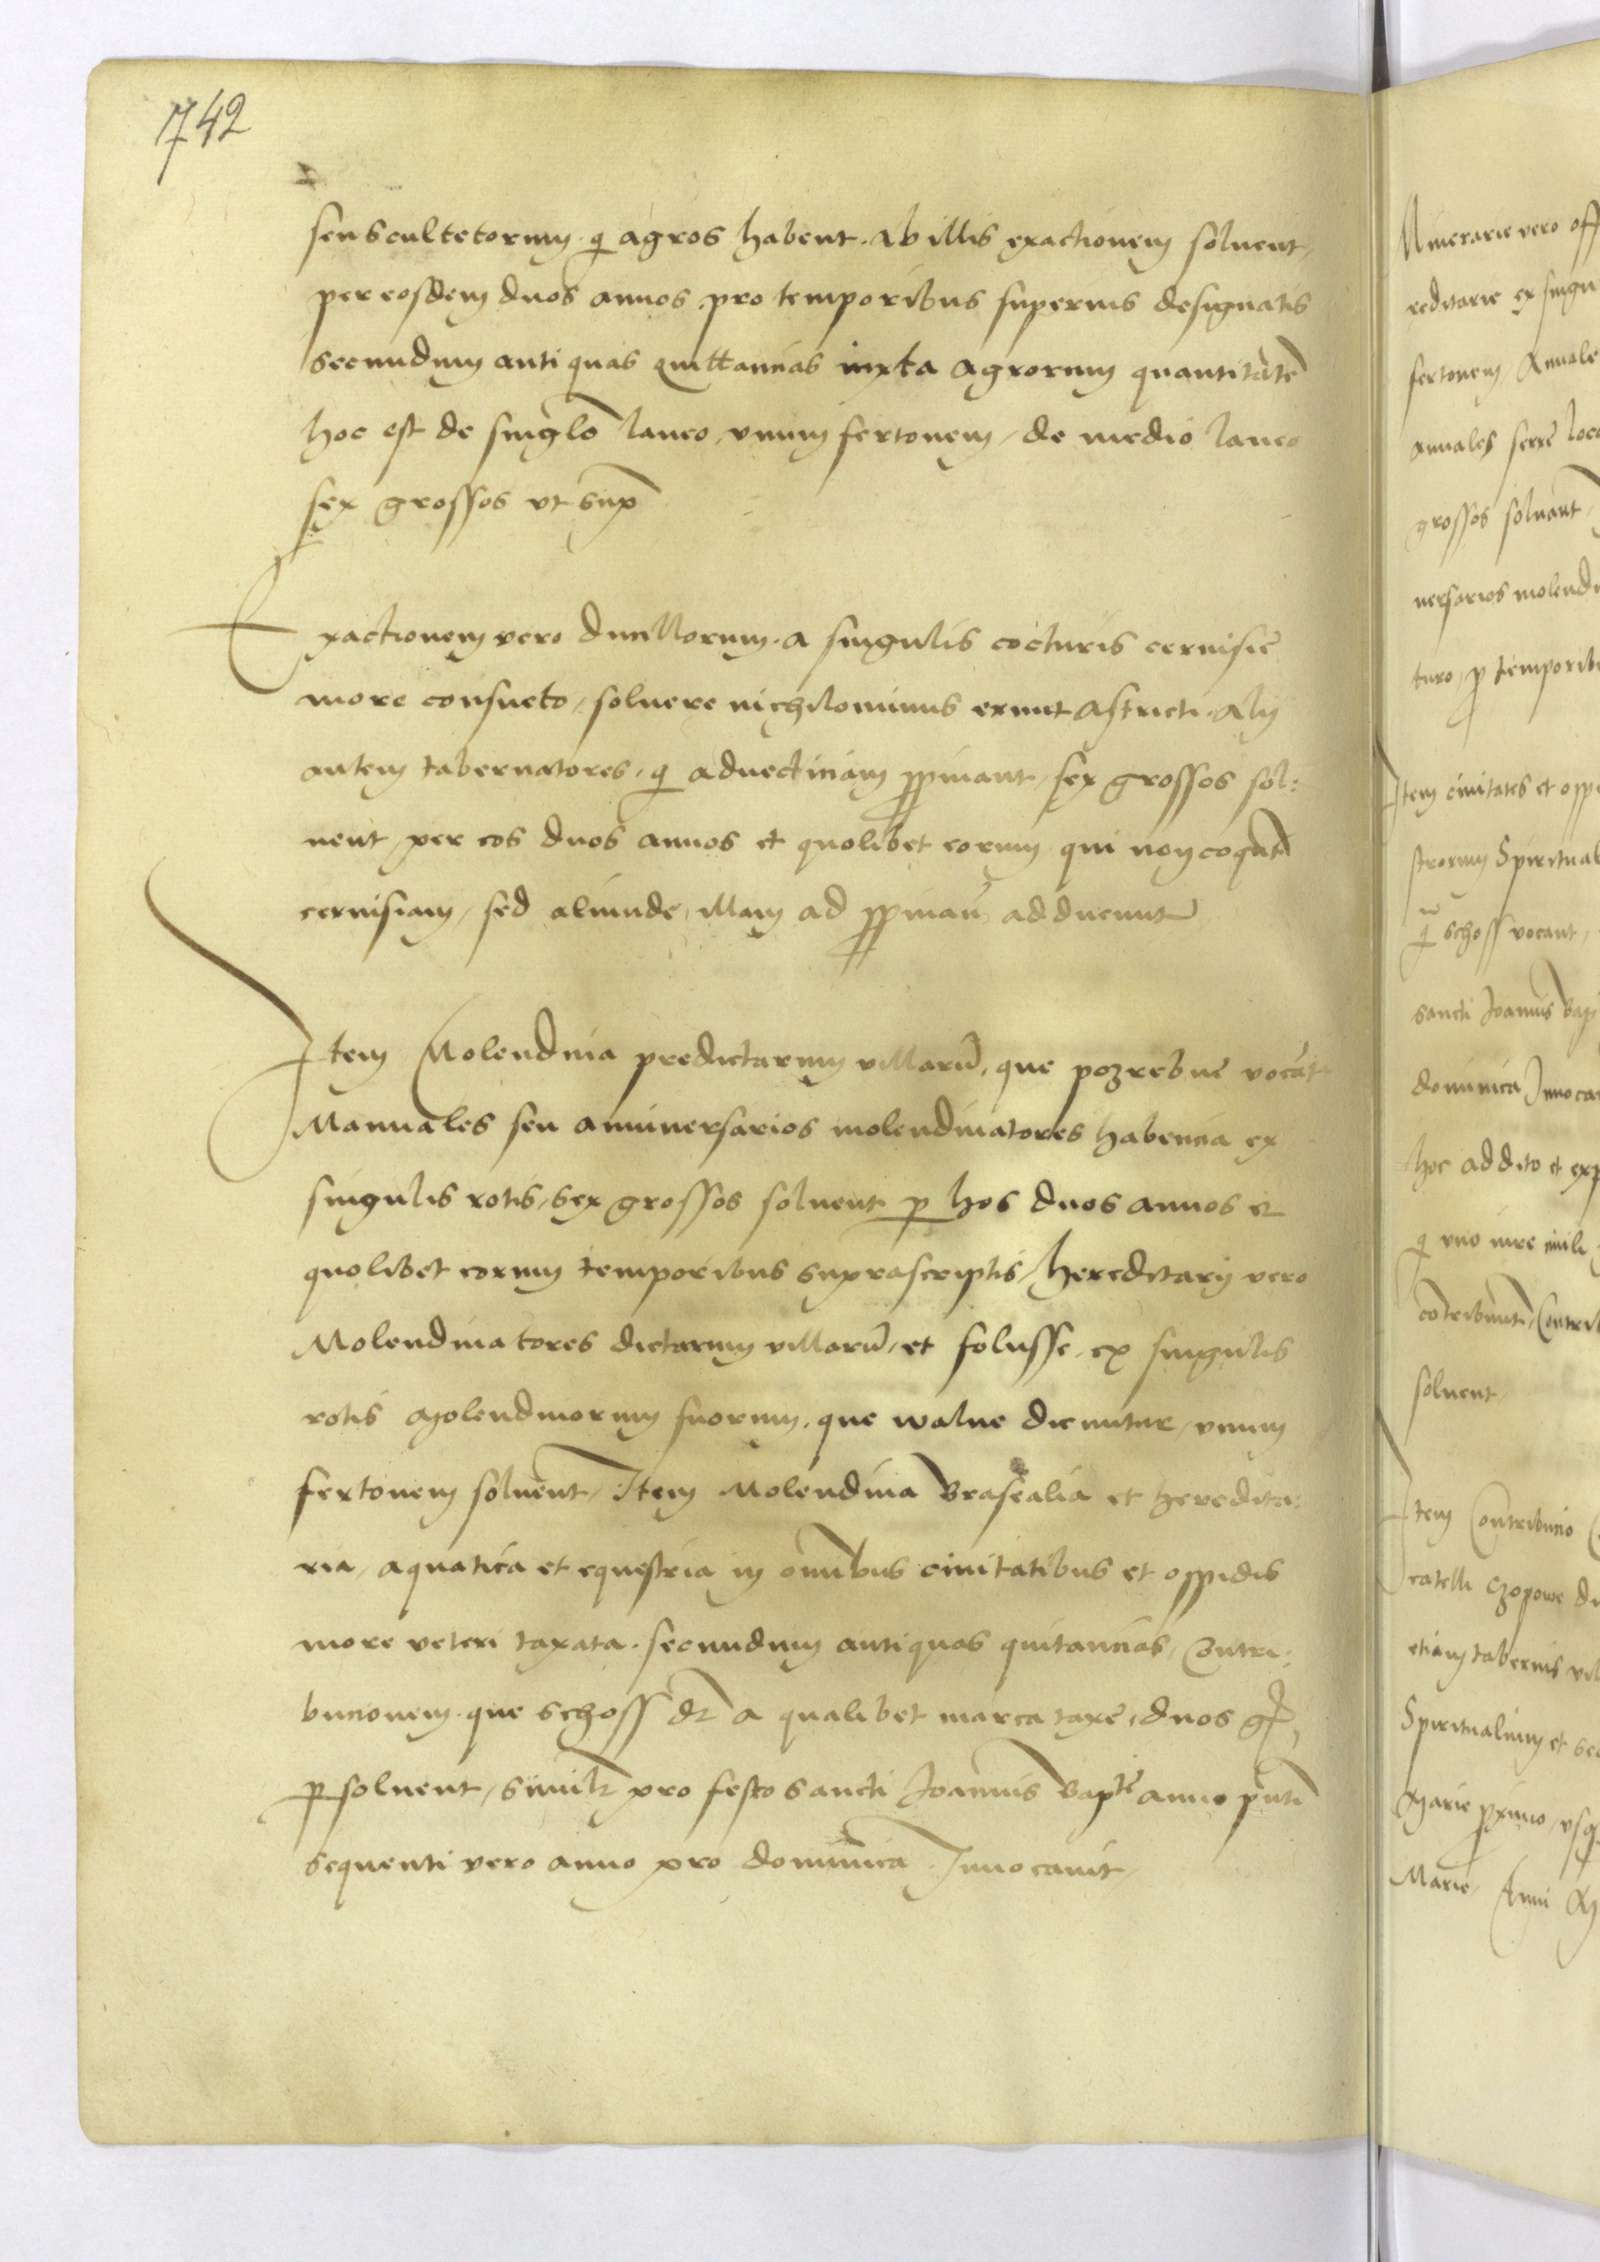 742
seu scultetorum. q agros habent. Ab illis exactionem soluent,
per eosdem duos annos pro temporibus superius designatis
secundum antiquas quittancias iuxta agrorum quantitatē
hoc est de singlo laneo, vnum fertonem, de medio laneo
sex grossos vt sup
Exactionem vero ducillorum. a singulis cocturis ceruisie
more consueto, soluere nichilominus erunt astricti. Alij
autem tabernatores, q aduecticiam ppinant, sex grossos sol:
uent, per eos duos annos et quolibet eorum qui non coquūt
ceruisiam, sed aliunde, illam ad ppinan adducunt
Item Molendina predictarum villarū, que pozrebne vocāt
Manuales seu anniuersarios molendinatores habencia ex
singulis rotis, sex grossos soluent p hos duos annos et
quolibet eorum temporibus suprascriptis, hereditarij vero
Molendinatores dictarum villarū, et folusse, ex singulis
rotis Molendinorum suorum, que walne dicuntur, vnum
fertonem soluent, Item Molendina Brasealia et heredita:
ria, aquatica et equestria in omibus ciuitatibus et oppidis
more veteri taxata. secundum antiquas quitancias, Contri:
bucionem. que schoss dr a qualibet marca taxe, duos g,
p soluent, similr pro festo sancti Joannis Bapte anno pnti
sequenti vero anno pro dominica Inuocauit,
Annerarie vero off
reditarie ex singu
fertonem, Annale
annales serre loc
grossos soluant,
uersarios molend
turo, p temporib
Item ciuitates et opp
strorum Spiritual
q schoss vocant,
sancti Joannis Bap
dominica Inuoca
hoc addito et exp
q vno iure
contribuunt, Contrib
soluent,
Item Contribucio
catelli Czopowe
etiam tabernis vil
Spiritualium et sec
Marie pximo, vsq
Marie, Anni